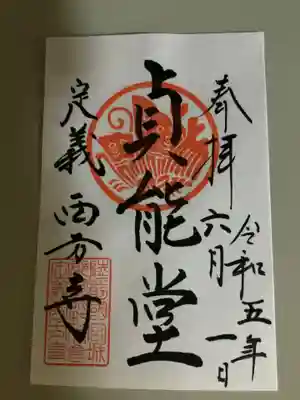 奉拝
令和五年
六月一日
貞能堂
定義西方寺